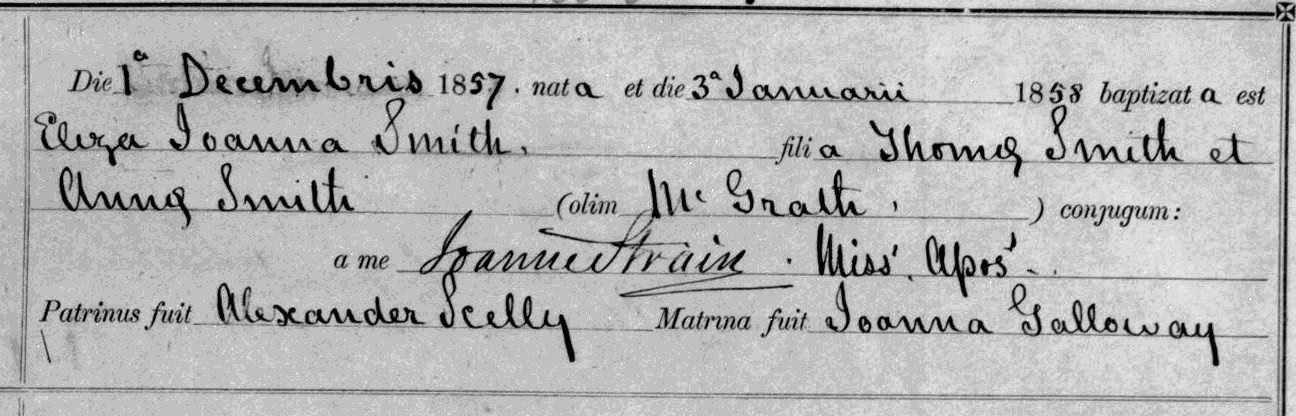 Die 1ª Decembris 1857. nata et die 3ª Januarii 1858 baptizata est
Eliza Joanna Smith. filia Thomæ Smith et
Annæ Smith (olim McGrath, ) conjugum:
a me Joanne Strain. Miss. Apos.
Patrinus fuit Alexander Scelly Matrina fuit Joanna Galloway